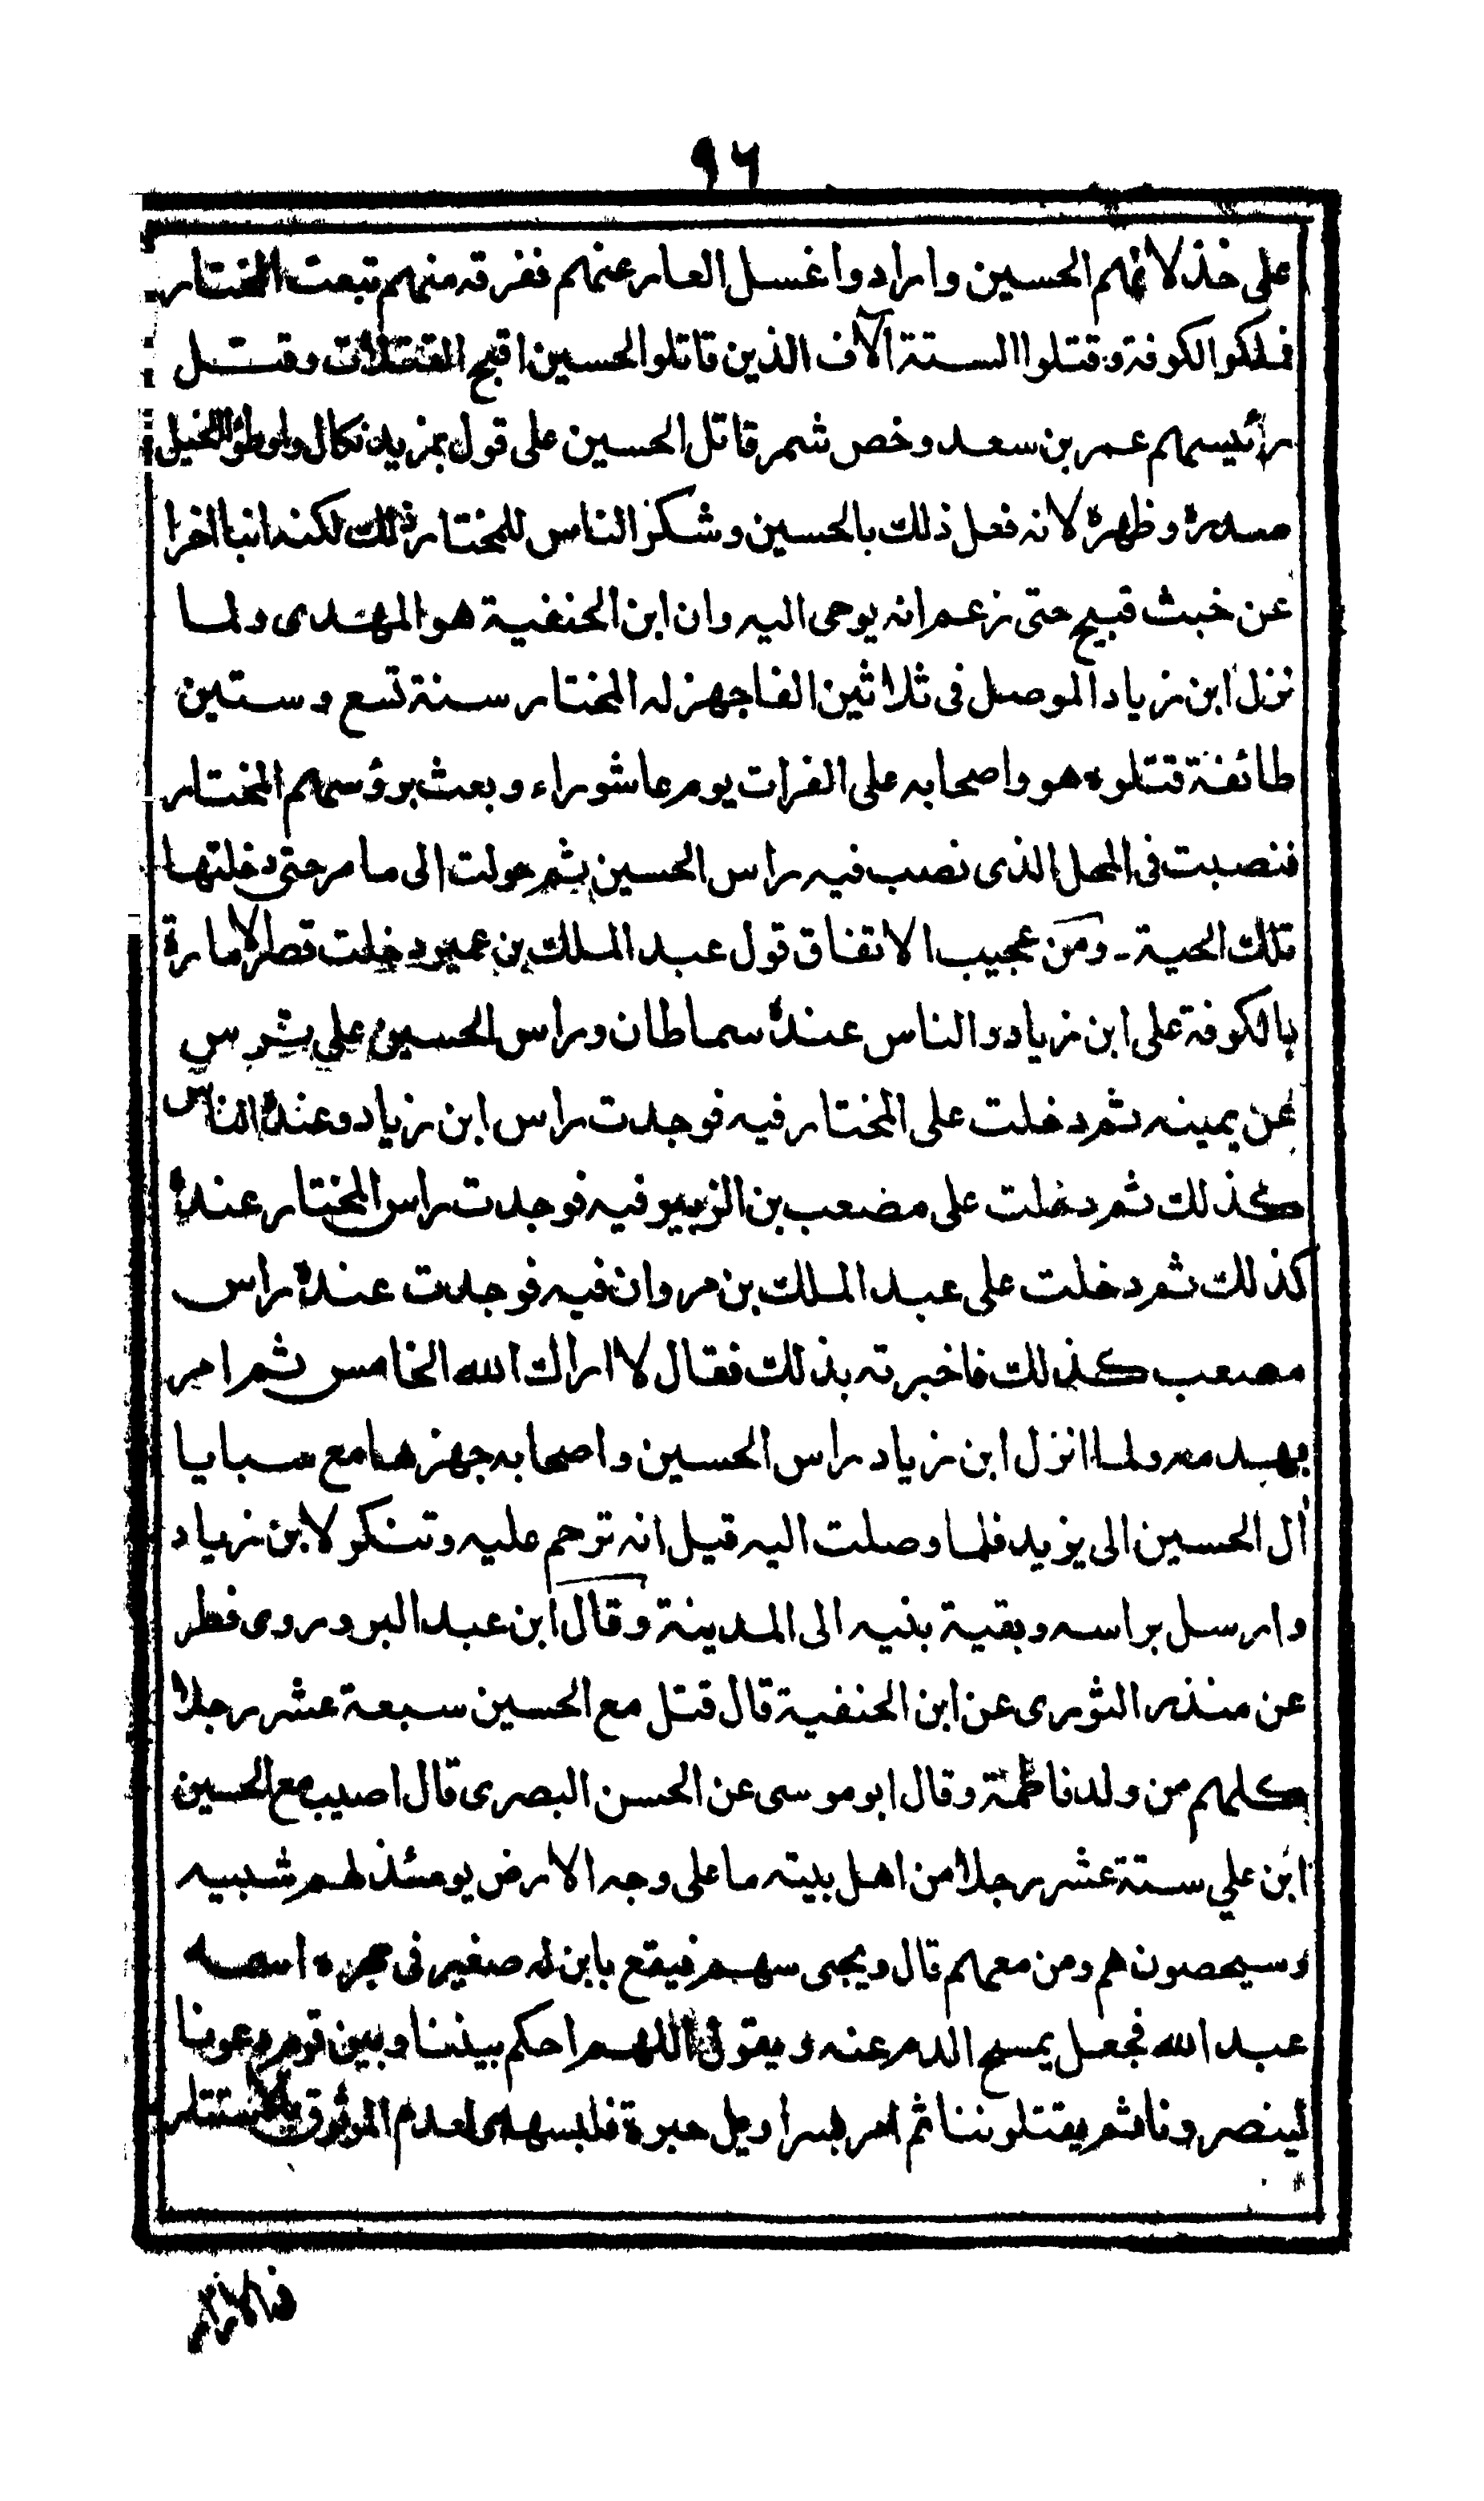 ٩٦
على خذلانهم الحسين وارادوا غسل العار عنهم ففرقة منهم تبعت المختار
فملكوا الكوفة وقتلوا الستة آلاف الذين قاتلوا الحسين اقبح القتلات وقتل
رائيسهم عمر بن سعد وخص شمر قاتل الحسين على قول بمزيد نكال واوطؤا الخيل
صدره وظهره لانه فعل ذلك بالحسين وشكر الناس للمختار ذلك لكنه انبا اخرا
عن خبث قبيح حتى زعم انه يوحى اليه وان ابن الحنفية هو المهدى ولما
نزل ابن زياد الموصل فى ثلاثين الفا جهز له المختار سنة تسع وستين
طائفة قتلوه هو واصحابه على الفرات يوم عاشوراء وبعث برؤسهم المختار
فنصبت فى المحل الذى نصب فيه راس الحسين ثم حولت الى ما مر حتى دخلتها
تلك الحية ـ ومن عجيب الاتفاق قول عبد الملك بن عمير دخلت قصر الامارة
بالكوفة على ابن زياد والناس عنده سماطان وراس الحسين على ترس
عن يمينه ثم دخلت على المختار فيه فوجدت راس ابن زياد وعنده الناس
كذلك ثم دخلت على مضعب بن الزبير فيه فوجدت راس المختار عنده
كذلك ثم دخلت على عبد الملك بن مروان فيه فوجدت عنده راس
مصعب كذلك فاخبرته بذلك فقال لا اراك الله الخامس ثم امر
بهدمه ولما انزل ابن زياد راس الحسين واصحابه جهزها مع سبايا
أل الحسين الى يزيد فلما وصلت اليه قيل انه ترحم عليه وتنكر لابن زياد
وارسل براسه وبقية بنيه الى المدينة وقال ابن عبد البر وروى فطر
عن منذر الثورى عن ابن الحنفية قال قتل مع الحسين سبعة عشر رجلا
كلهم من ولد فاطمة وقال ابو موسى عن الحسن البصرى قال اصيب مع الحسين
ابن علي ستة عشر رجلا من اهل بيته ما على وجه الارض يومئذ لهم شبيه
وسيحصون هم ومن معهم قال ويجى سهم فيقع بابن له صغير فى حجره اسمه
عبد الله فجعل يمسح الدم عنه ويقول اللهم احكم بيننا وبين قوم دعونا
لينصرونا ثم يقتلوننا ثم امر بسراويل حبرة فلبسها لعدم